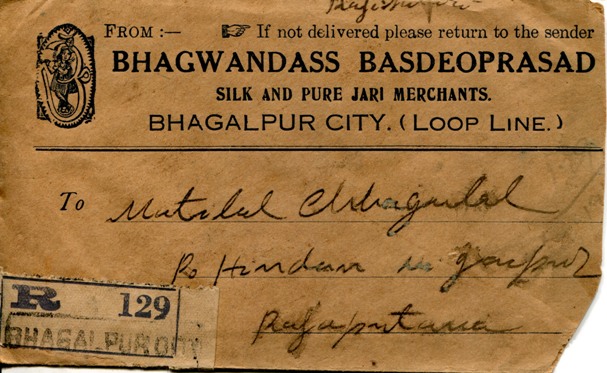 Registered
FROM :— ☞ If not delivered please return to the sender
BHAGWANDASS BASDEOPRASAD
SILK AND PURE JARI MERCHANTS.
BHAGALPUR CITY. (LOOP LINE.)
To Matilal
Po Hindaun Jaipur
Rajaputana
R 129
BHAGALPUR CITY